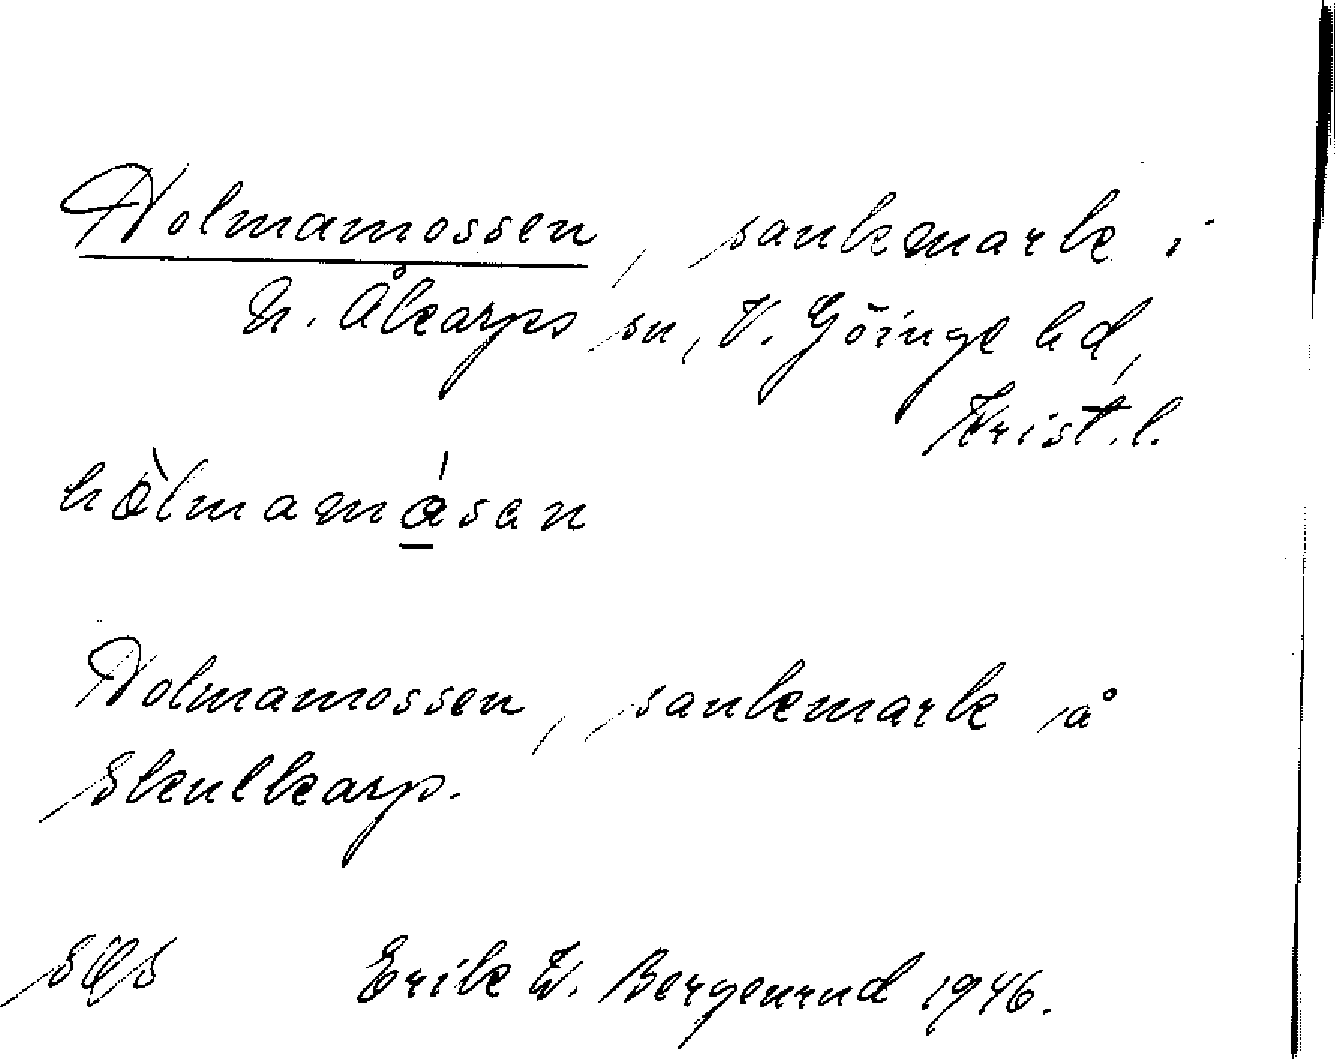 Holmamossen, sankmark i
N. Åkarps sn, V. Göinge hd,
Krist. l.
hòlmamásan
Holmamossen, sankmark å
Skulkarp.
Erik W. Bergenrud 1946.